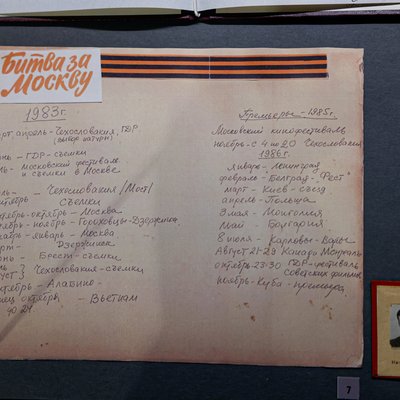 Битва за
Москву
1983г.
апрель - Чехословакия, ГДР
(выбор натуры)
- ГДР - съемки
- Московский фестиваль
и съемки в Москве
- Чехословакия /Мост/
съемки
октябрь - Москва
ноябрь - Гороховцы - Дзержинск
январь - Москва
- Дзержинск
- Брест - съемки
} Чехословакия - съемки
- Алабино -
октября - Вьетнам
до 24
Премьеры - 1985г.
Московский кинофестиваль
ноябрь - с 4 по 20 Чехословакия
1986г.
январь - Ленинград
февраль - Белград - "Фест"
март - Киев - съезд
апрель - Польша
3 мая - Монголия
май - Болгария
8 июля - Карловы-Вары
Август 21-29 Канада Монреаль
октябрь 23-30 ГДР - фестиваль
Советских фильмов
ноябрь - Куба - премьера
7